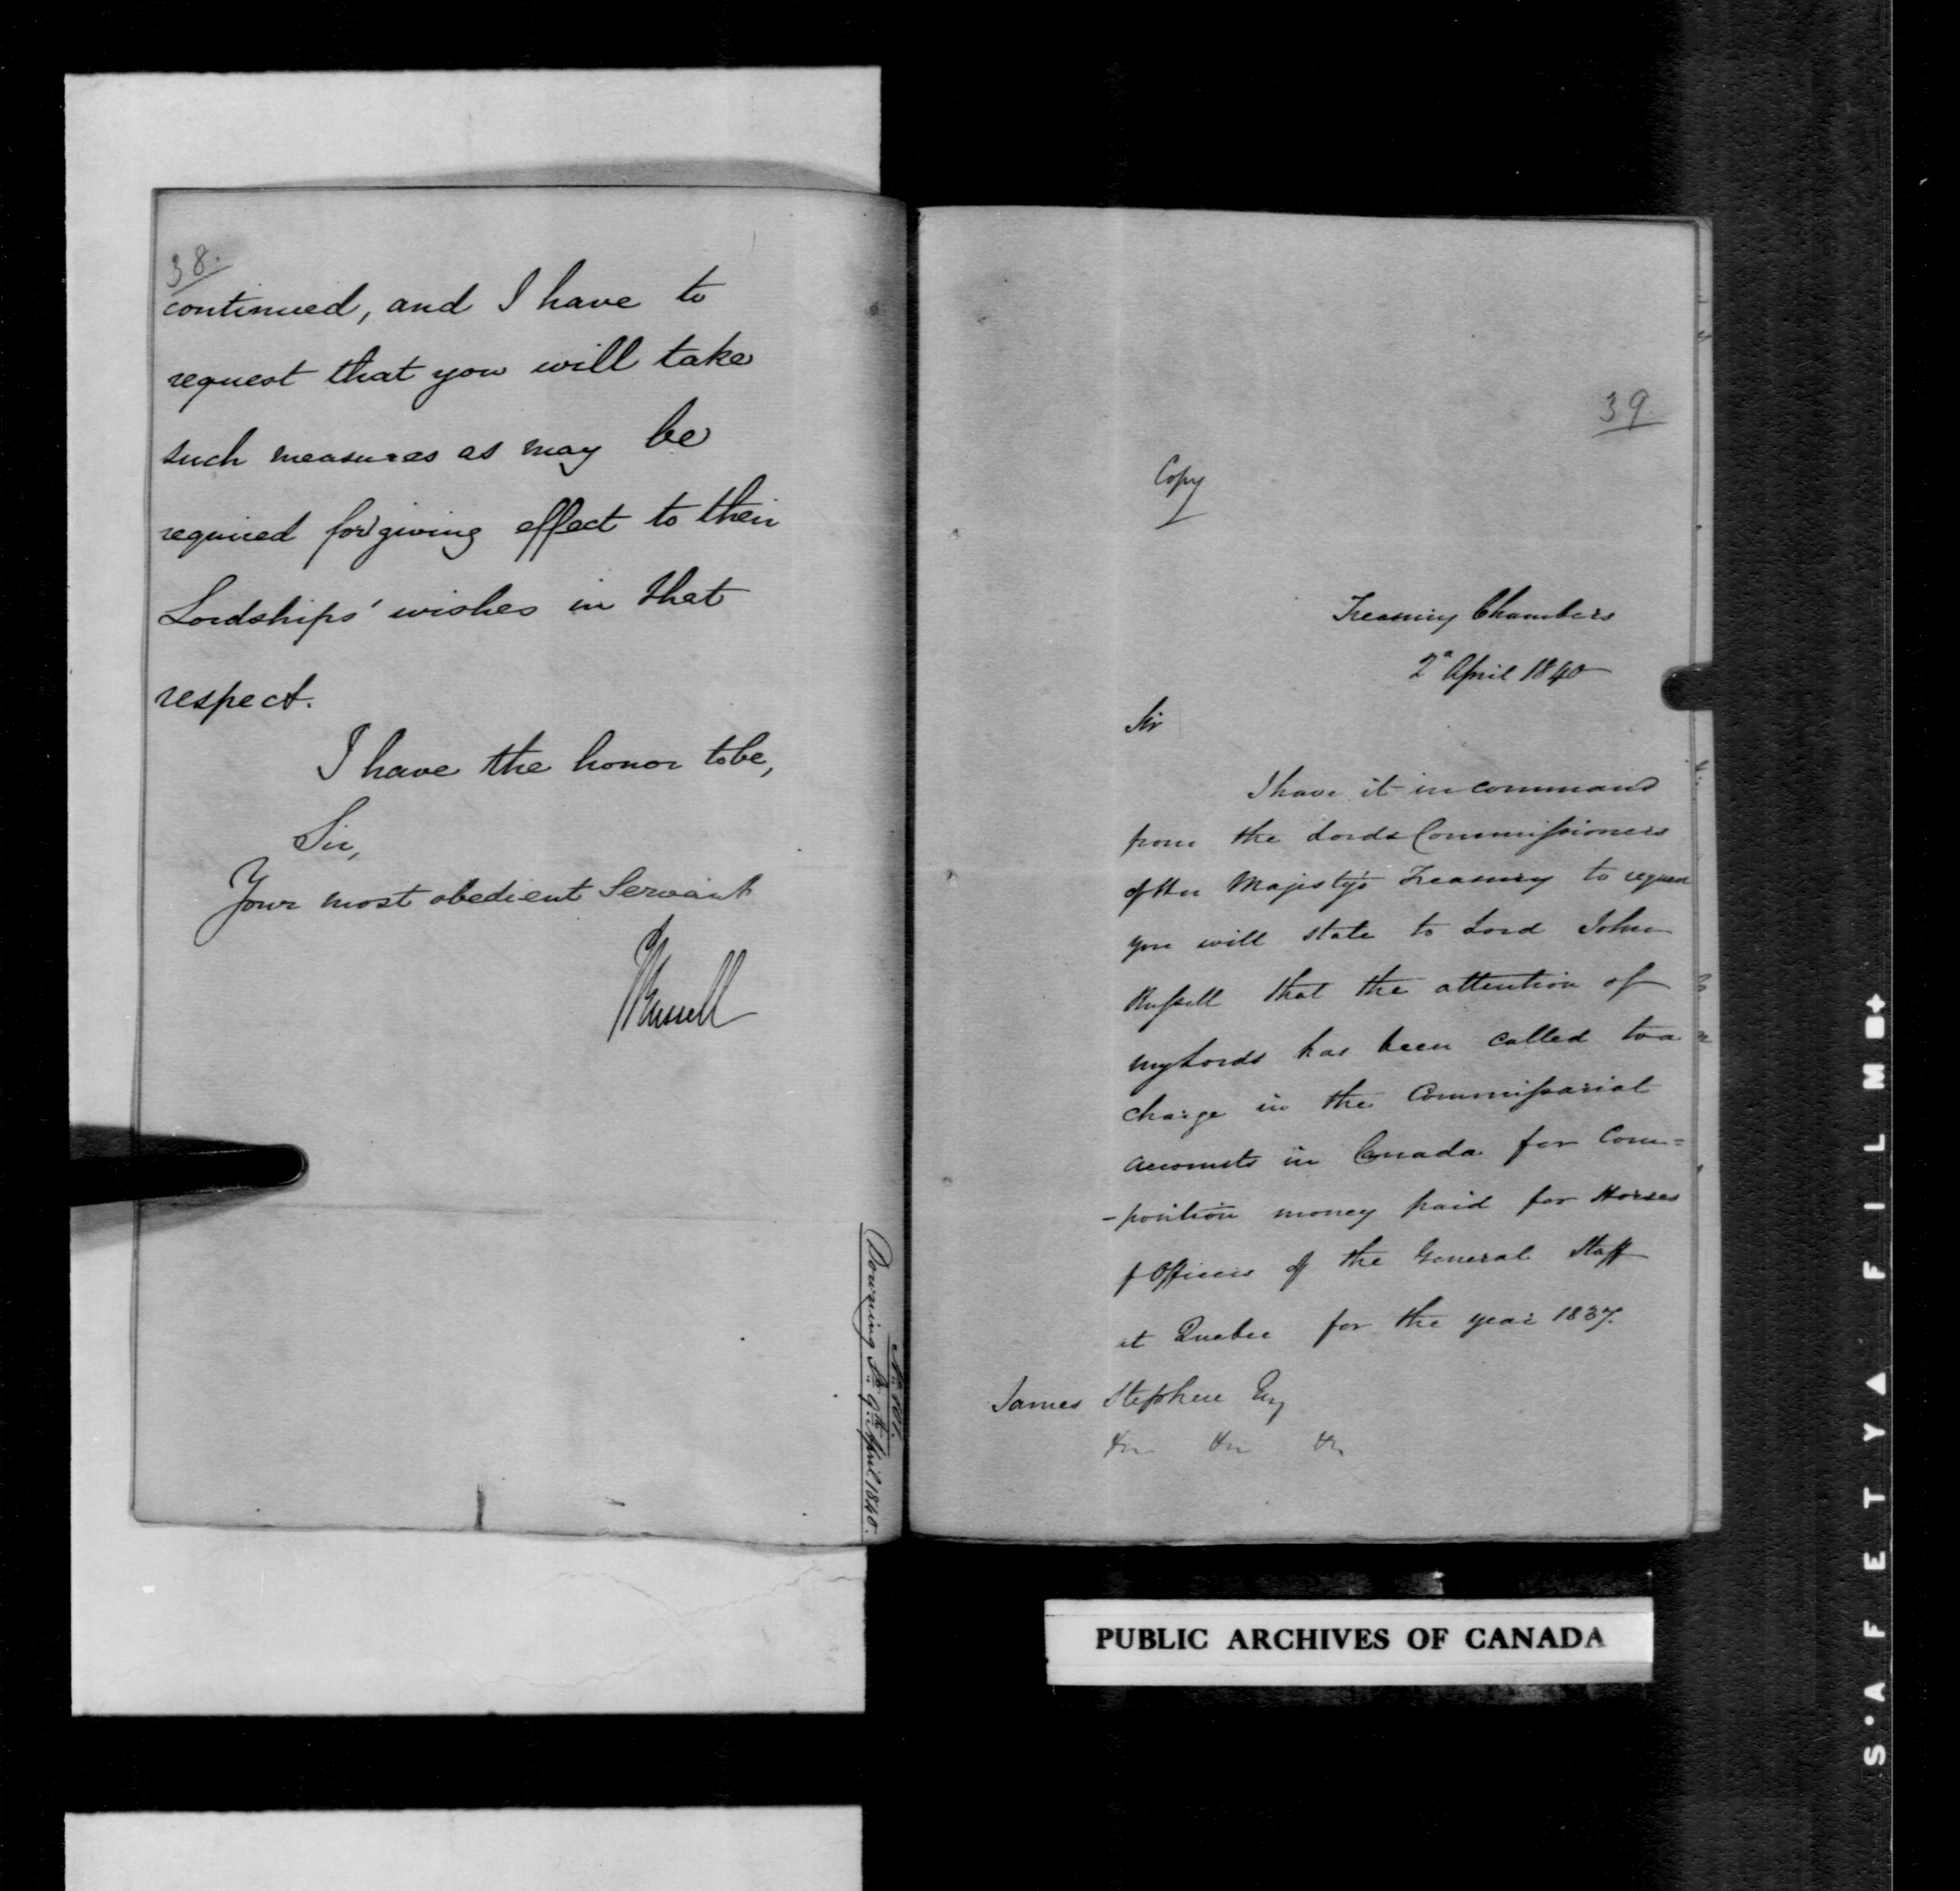 38.
continued, and I have to
request that you will take
such measures as may be
required for giving effect to their
Lordships' wishes in that
respect.
I have the honor to be,
Sir,
Your most obedient Servant
J Russell
No. 101.
Downing St. 9th April 1840.
39.
Copy
Treasury Chambers
2d April 1840
Sir
I have it in command
from the Lords Commissioners
of Her Majesty's Treasury to request
you will state to Lord John
Russell that the attention of
my Lords has been called to a
charge in the Commissariat
accounts in Canada for Com=
-position money paid for Horses
of Officers of the General Staff
at Quebec for the year 1837.
James Stephen Esq
&c &c &c
PUBLIC ARCHIVES OF CANADA
S·AFETY▲FILM■+